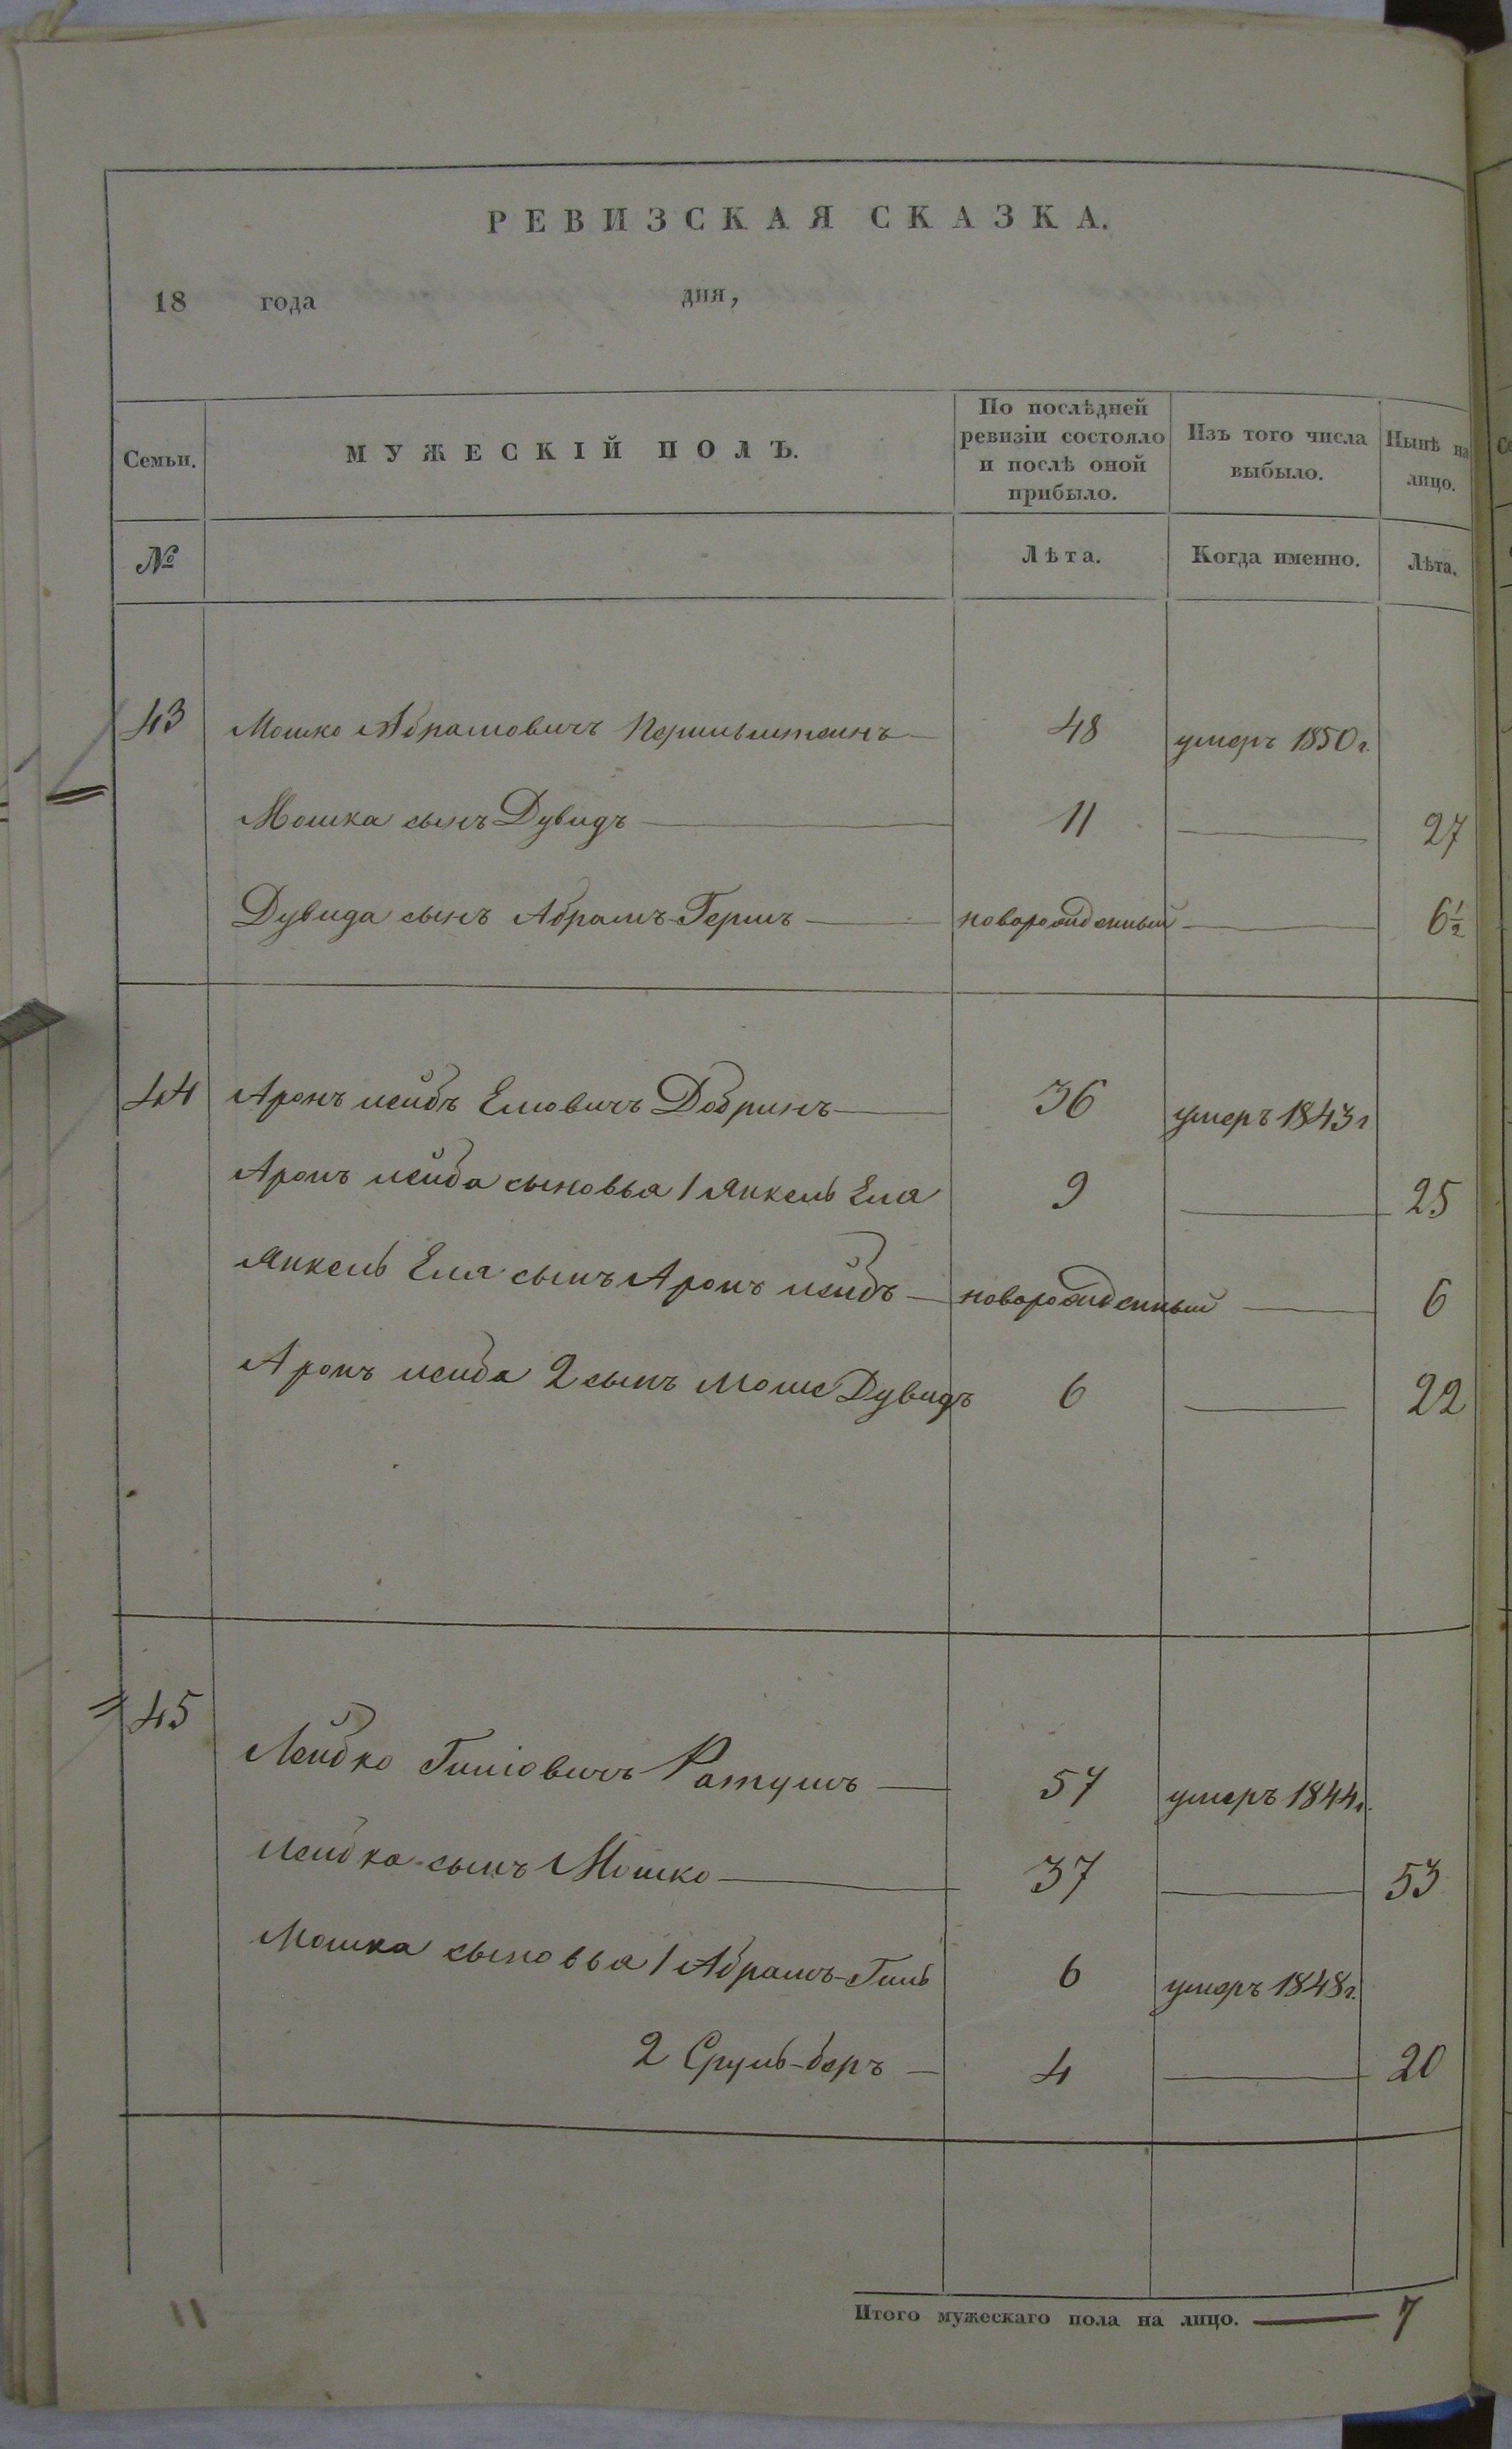 РЕВИЗСКАЯ СКАЗКА.
18 года дня,
Семьи.
МУЖЕСКІЙ ПОЛЪ.
По послѣдней
ревизіи состояло
и послѣ оной
прибыло.
Изъ того числа
выбыло.
Нынѣ на
лицо.
№
Лѣта.
Когда именно.
Лѣта.
43 Мошко Абрамовичъ Перильштеинъ 48 умеръ 1850 г.
Мошка сынъ Дувидъ 11 27
Дувида сынъ Абрамъ-Гершъ новорожденный 6 1/2
44 Аронъ лейбъ Еліовичъ Добринъ 36 умеръ 1843 г
Аронъ лейба сыновья 1 Янкель Еля 9 25
Янкель Еля сынъ Аронъ лейбъ новорожденный 6
Аронъ лейба 2 сынъ Моше Дувидъ 6 22
45 Лейбко Гиліовичъ Ратушъ 57 умеръ 1844 г.
Лейбка сынъ Мошко 37 53
Мошка сыновья 1 Абрамъ-Гиль 6 умеръ 1848 г.
2 Сруль-беръ 4 20
Итого мужескаго пола на лицо. 7
11